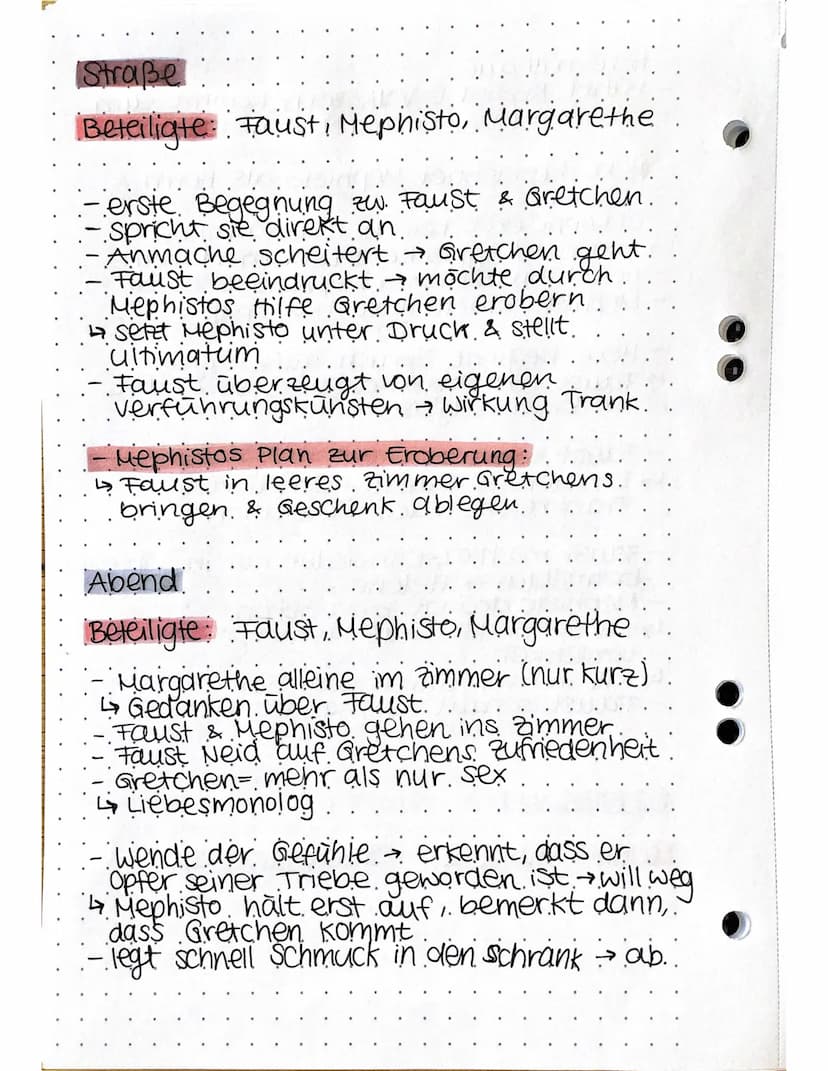 Straße
Beteiligte: Faust, Mephisto, Margarethe
- erste Begegnung zw. Faust & Gretchen
- spricht sie direkt an
- Anmache scheitert → Gretchen geht
- Faust beeindruckt → möchte durch
Mephistos Hilfe Gretchen erobern
↳ setzt Mephisto unter Druck & stellt
Ultimatum
- Faust überzeugt von eigenen
Verführungskünsten → Wirkung Trank
- Mephistos Plan zur Eroberung:
↳ Faust in leeres Zimmer Gretchens
bringen & Geschenk ablegen
Abend
Beteiligte: Faust, Mephisto, Margarethe
- Margarethe alleine im Zimmer (nur kurz)
↳ Gedanken über Faust
- Faust & Mephisto gehen ins Zimmer
- Faust Neid auf Gretchens Zufriedenheit
- Gretchen = mehr als nur Sex
↳ Liebesmonolog
- Wende der Gefühle → erkennt, dass er
Opfer seiner Triebe geworden ist → will weg
↳ Mephisto hält erst auf, bemerkt dann,
dass Gretchen kommt
- legt schnell Schmuck in den Schrank → ab